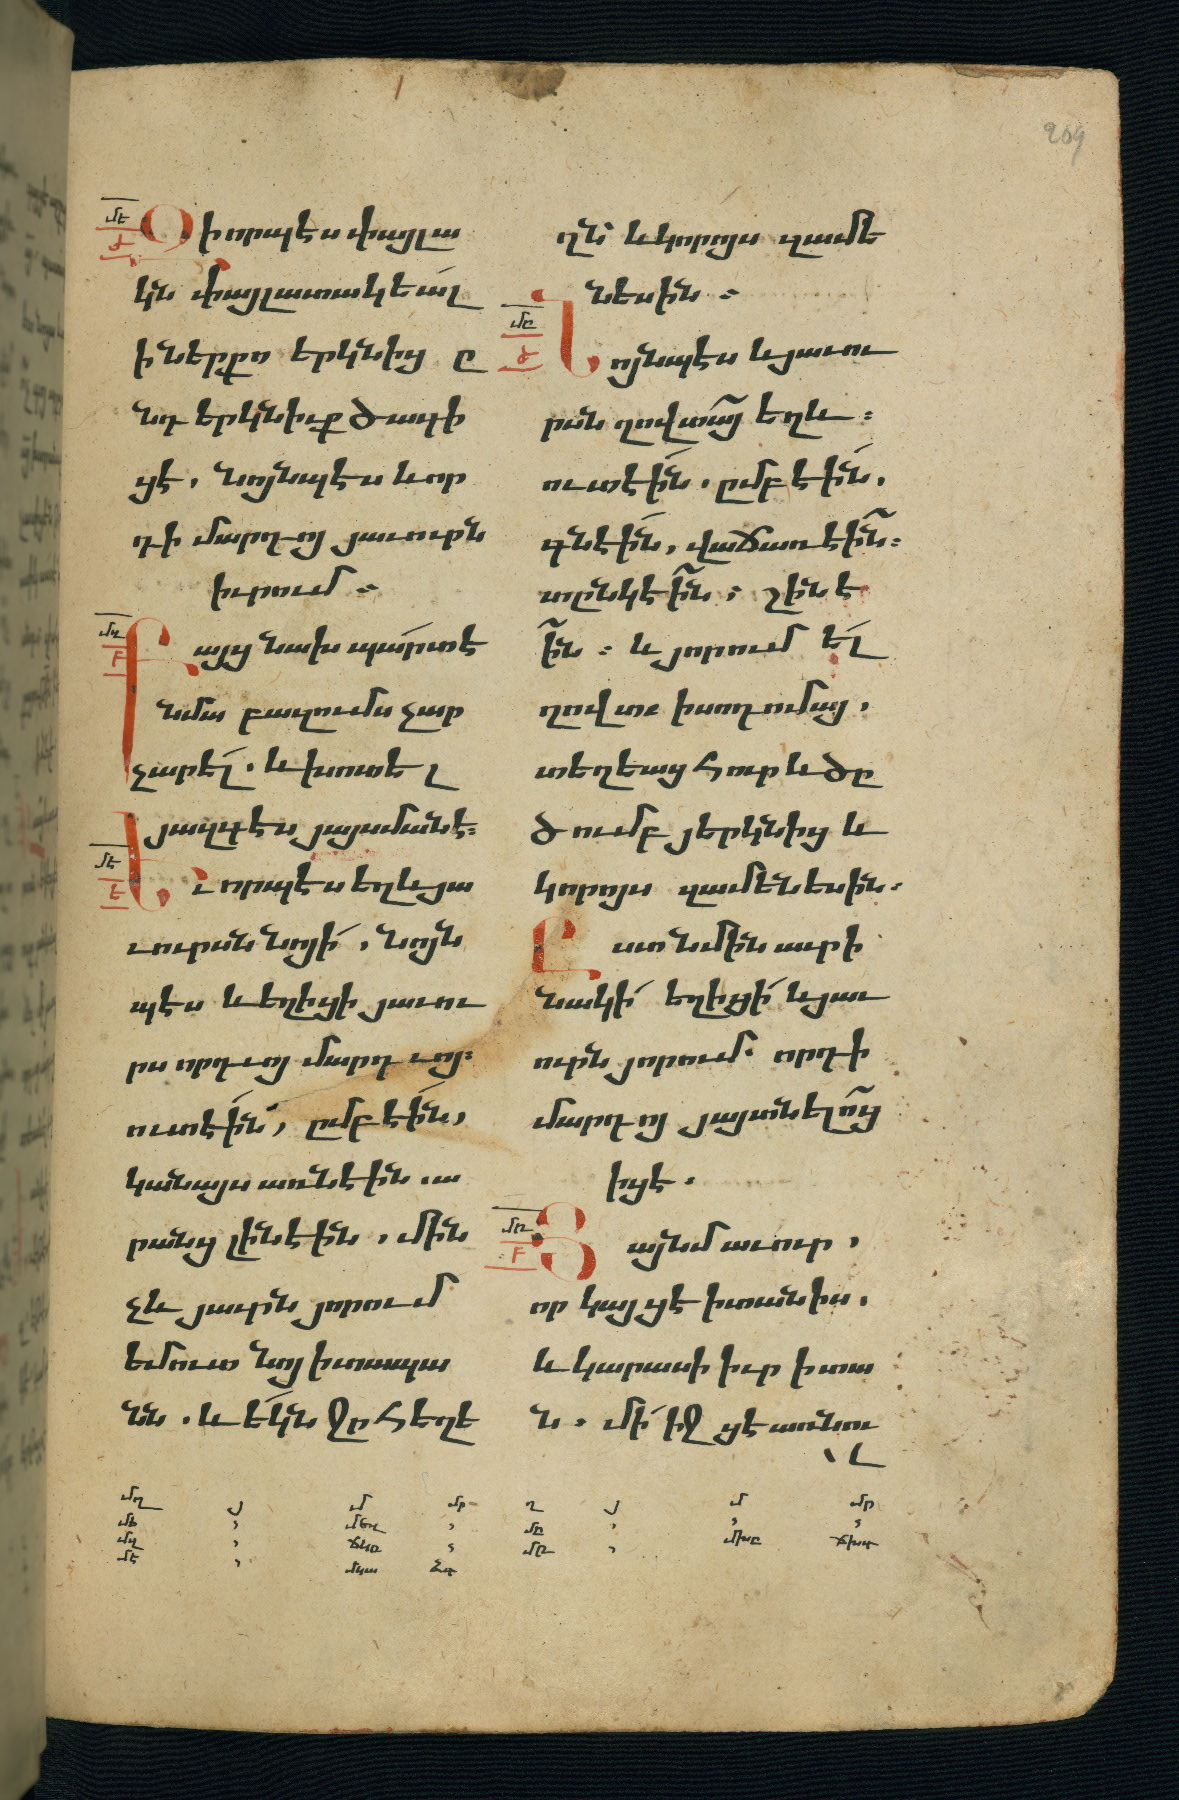 մե
ժ
Զի որպէս փայլա
կն փայլատակեալ
ի ներքո երկնից ը
նդ երկնիւք ծագի
ցէ. նոյնպէս և որ
դի մարդոյ յաւուրն
իւրում:
Բայց նախ պարտ է
նմա բազումս չար
չարել. և խոտել
յազգէս յայսմանէ:
Եւ որպէս եղև յա
ւուրսն նոյի, նոյն
պէս և եղիցի յաւու
րս որդւոյ մարդւոյ:
ուտէին, ըմբէին,
կանայս առնէին. ա
րանց լինէին, մին
չև յաւրն յորում
եմուտ նոյ ի տապա
նն. և եկն ջրհեղե
ղն՝ և կորոյս զամե
նեսին:
մը
ժ
Նոյնպէս և յաւու
րսն ղովտայ եղև:
ուտէին. ըմբէին.
գնէին, վաճառէին:
տընկէին: շինէ
ին: և յորում ել
ղովտ ի սոդոմայ,
տեղեաց հուր և ծը
ծումբ յերկնից և
կորոյս զամենեսին:
Ըստ նմին աւրի
նակի եղիցի և յաւ
ուրն յորում. որդի
մարդոյ յայտնելոց
իցէ.
Յայնմ աւուր,
որ կայցէ ի տանիս.
և կարասի իւր ի տա
ն. մի իջցէ առնու
լ